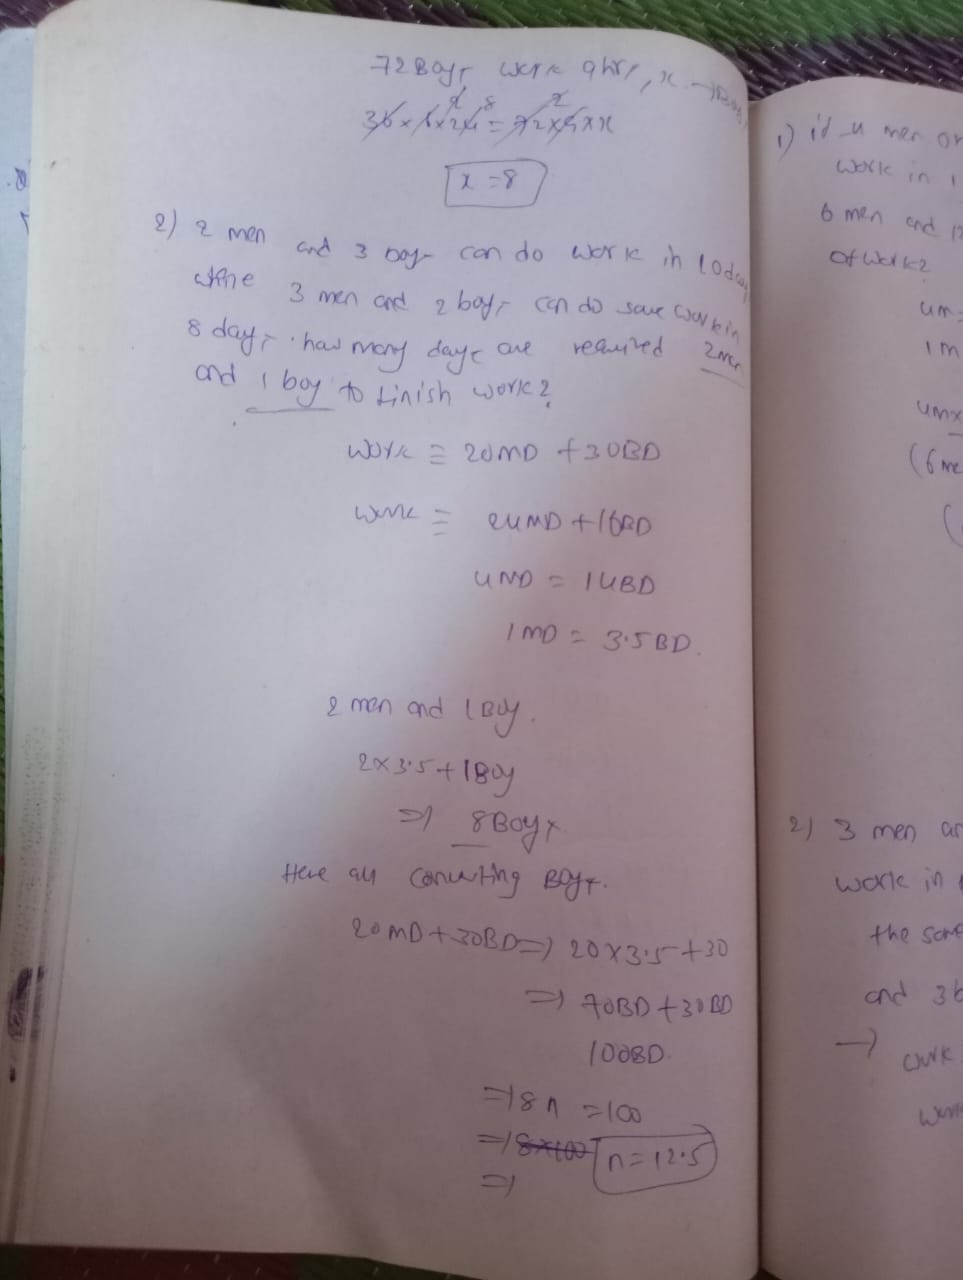 72 Boys work 9 hrs, x → Boy
36 x 6 x 24 = 72 x 9 x x
x = 8
2) 2 men and 3 boys can do work in 10 days
where 3 men and 2 boys can do same work in
8 days, how many days are required 2 men
and 1 boy to finish work?
work ≡ 20MD + 30BD
work ≡ 24MD + 16BD
4MD = 14BD
1MD = 3.5BD.
2 men and 1 Boy.
2x3.5 + 1Boy
⇒ 8Boys
Here all converting Boys.
20MD + 30BD ⇒ 20 x 3.5 + 30
⇒ 70BD + 30BD
100BD.
⇒ 8n = 100
⇒ 8x100 n = 12.5
⇒
1) if 4 men or
work in 1
6 men and 12
of work?
4m =
1m
4mx
(6 me
(
2) 3 men an
work in
the same
and 3b
→ work
work